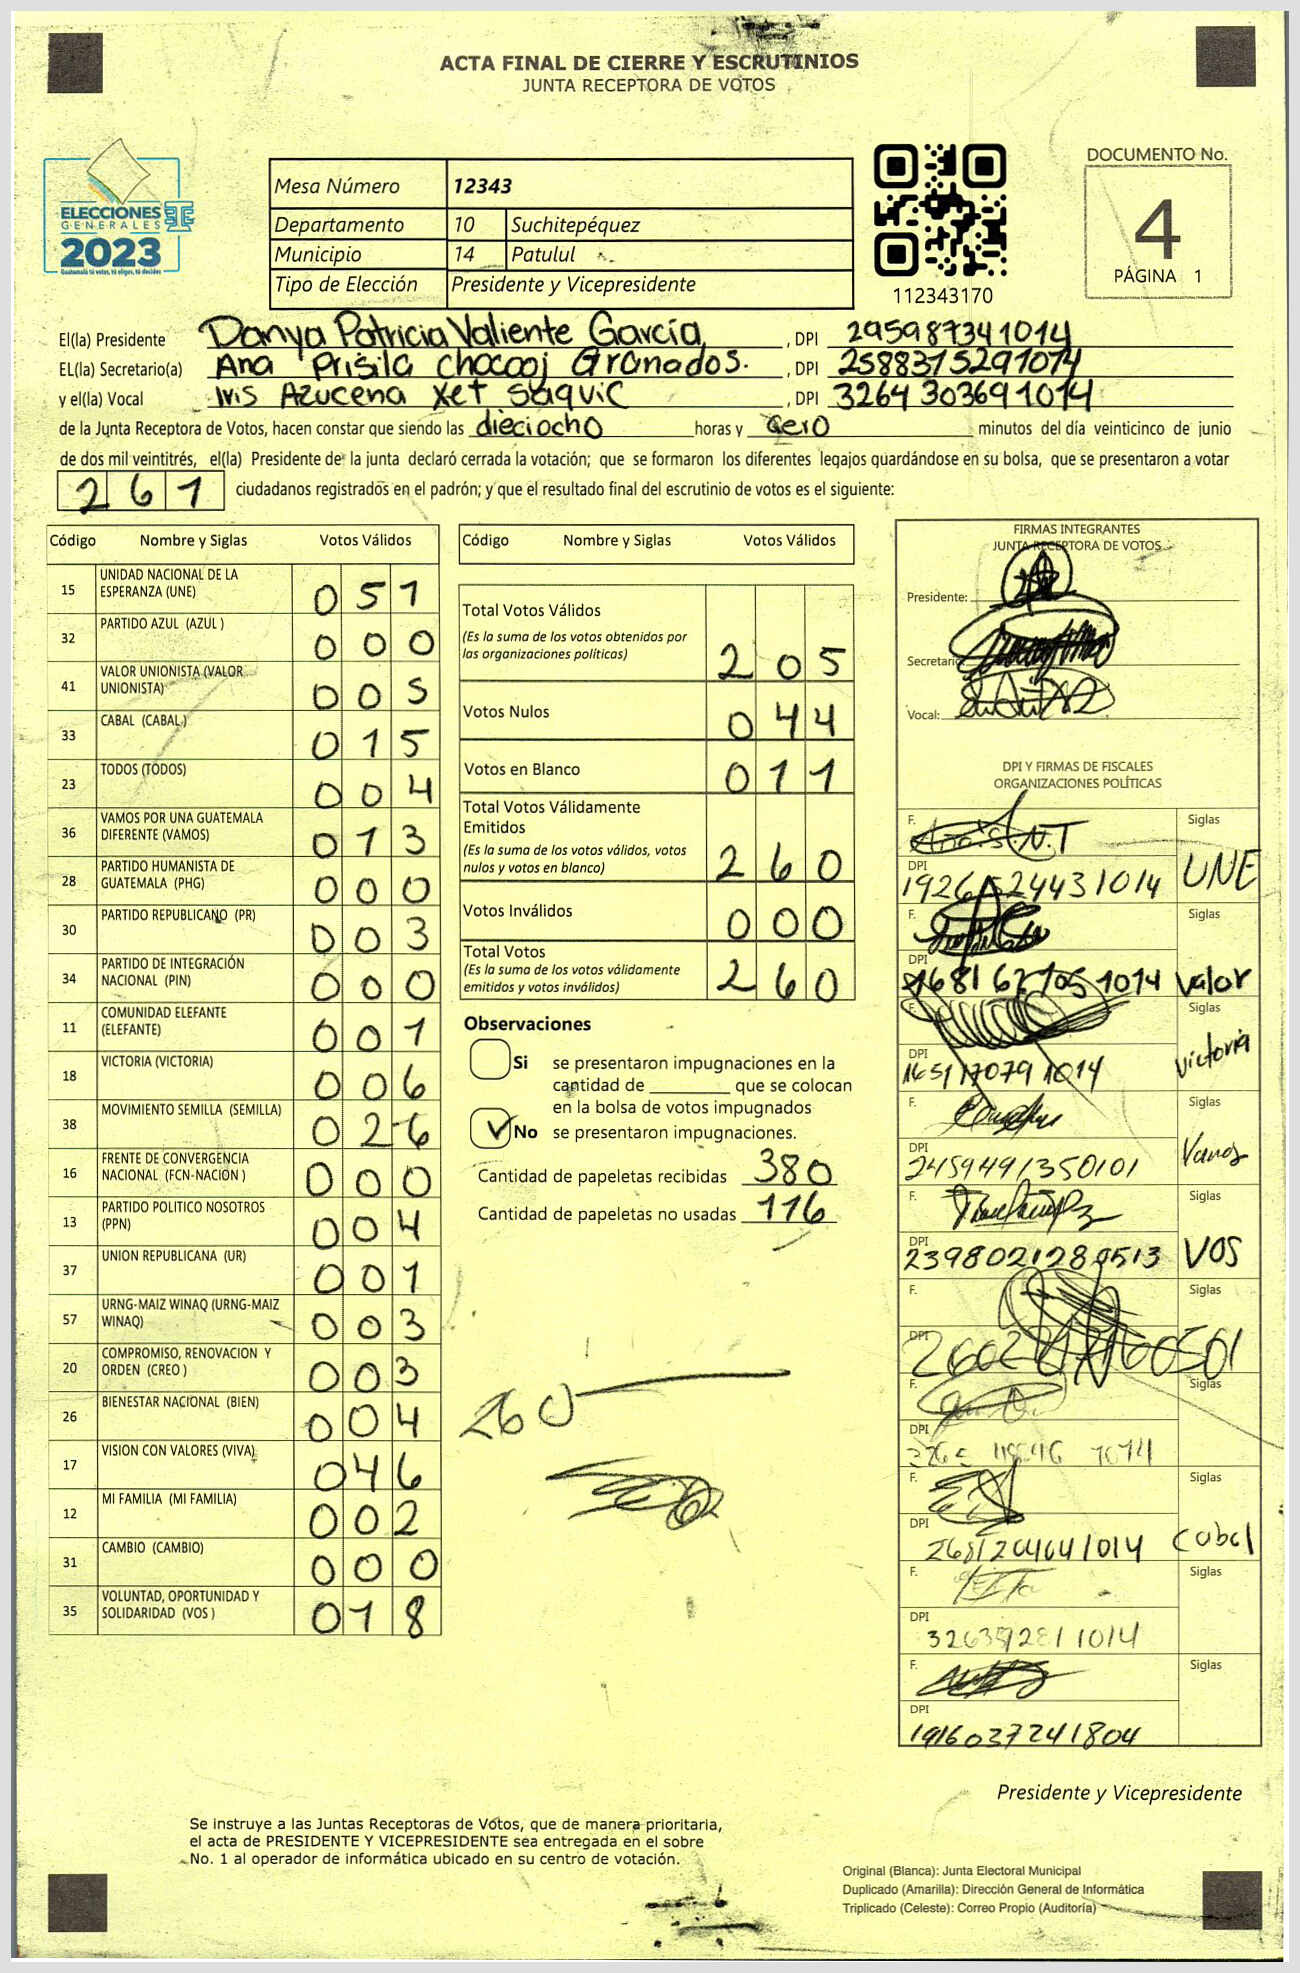 ACTA FINAL DE CIERRE Y ESCRUTINIOS
JUNTA RECEPTORA DE VOTOS
ELECCIONES
GENERALES
2023
Guatemala tú votas, tú eliges, tú decides
Mesa Número 12343
Departamento 10 Suchitepéquez
Municipio 14 Patulul
Tipo de Elección Presidente y Vicepresidente
112343170
DOCUMENTO No.
4
PÁGINA 1
El(la) Presidente Danya Patricia Valiente García, DPI 295987341014
EL(la) Secretario(a) Ana Prisila Chocooj Granados. , DPI 2588375291014
y el(la) Vocal Iris Azucena Xet Saquic , DPI 3264303691014
de la Junta Receptora de Votos, hacen constar que siendo las dieciocho horas y cero minutos del día veinticinco de junio
de dos mil veintitrés, el(la) Presidente de la junta declaró cerrada la votación; que se formaron los diferentes legajos guardándose en su bolsa, que se presentaron a votar
261 ciudadanos registrados en el padrón; y que el resultado final del escrutinio de votos es el siguiente:
Código Nombre y Siglas Votos Válidos
15 UNIDAD NACIONAL DE LA ESPERANZA (UNE) 051
32 PARTIDO AZUL (AZUL ) 000
41 VALOR UNIONISTA (VALOR UNIONISTA) 005
33 CABAL (CABAL ) 015
23 TODOS (TODOS) 004
36 VAMOS POR UNA GUATEMALA DIFERENTE (VAMOS) 013
28 PARTIDO HUMANISTA DE GUATEMALA (PHG) 000
30 PARTIDO REPUBLICANO (PR) 003
34 PARTIDO DE INTEGRACIÓN NACIONAL (PIN) 000
11 COMUNIDAD ELEFANTE (ELEFANTE) 001
18 VICTORIA (VICTORIA) 006
38 MOVIMIENTO SEMILLA (SEMILLA) 026
16 FRENTE DE CONVERGENCIA NACIONAL (FCN-NACION ) 000
13 PARTIDO POLITICO NOSOTROS (PPN) 004
37 UNION REPUBLICANA (UR) 001
57 URNG-MAIZ WINAQ (URNG-MAIZ WINAQ) 003
20 COMPROMISO, RENOVACION Y ORDEN (CREO ) 003
26 BIENESTAR NACIONAL (BIEN) 004
17 VISION CON VALORES (VIVA) 046
12 MI FAMILIA (MI FAMILIA) 002
31 CAMBIO (CAMBIO) 000
35 VOLUNTAD, OPORTUNIDAD Y SOLIDARIDAD (VOS ) 018
Código Nombre y Siglas Votos Válidos
Total Votos Válidos 205
(Es la suma de los votos obtenidos por
las organizaciones políticas)
Votos Nulos 044
Votos en Blanco 011
Total Votos Válidamente
Emitidos 260
(Es la suma de los votos válidos, votos
nulos y votos en blanco)
Votos Inválidos 000
Total Votos 260
(Es la suma de los votos válidamente
emitidos y votos inválidos)
Observaciones
Si se presentaron impugnaciones en la
cantidad de ________ que se colocan
en la bolsa de votos impugnados
No se presentaron impugnaciones.
Cantidad de papeletas recibidas 380
Cantidad de papeletas no usadas 116
260
FIRMAS INTEGRANTES
JUNTA RECEPTORA DE VOTOS
Presidente:
Secretario:
Vocal:
DPI Y FIRMAS DE FISCALES
ORGANIZACIONES POLÍTICAS
F. Siglas
DPI UNE
F. Siglas
DPI Valor
F. Siglas
DPI victoria
F. Siglas
DPI 2459491350101 Vamos
F. Siglas
DPI 2398021280513 VOS
F. Siglas
DPI
F. Siglas
DPI
F. Siglas
DPI 2681204641014 Cabal
F. Siglas
DPI
F. Siglas
DPI 1916037241804
Presidente y Vicepresidente
Se instruye a las Juntas Receptoras de Votos, que de manera prioritaria,
el acta de PRESIDENTE Y VICEPRESIDENTE sea entregada en el sobre
No. 1 al operador de informática ubicado en su centro de votación.
Original (Blanca): Junta Electoral Municipal
Duplicado (Amarilla): Dirección General de Informática
Triplicado (Celeste): Correo Propio (Auditoría)